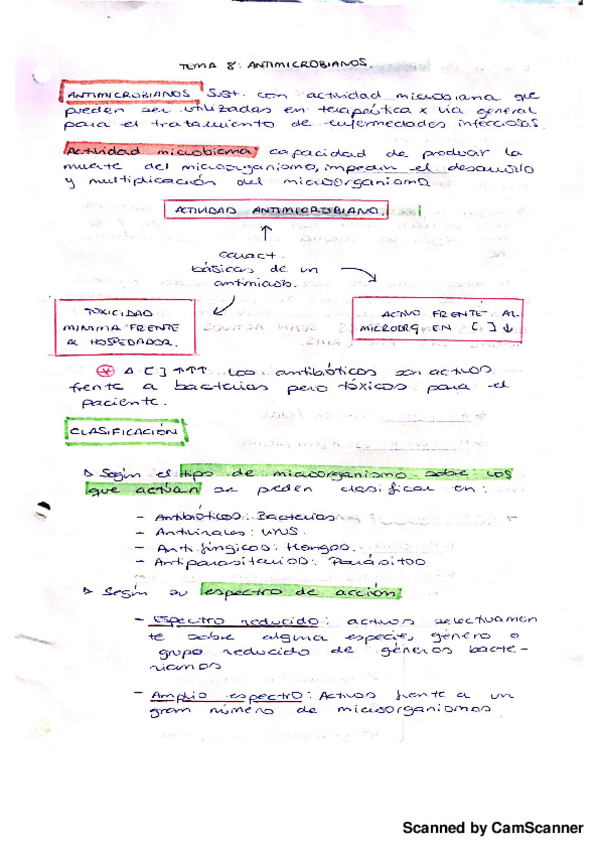 TEMA 8: ANTIMICROBIANOS.
ANTIMICROBIANOS Sust. con actividad microbiana que
pueden ser utilizadas en terapéutica x vía general
para el tratamiento de enfermedades infecciosas.
Actividad microbiana: capacidad de producir la
muerte del microorganismo, impedir el desarrollo
y multiplicación del microorganismo.
ACTIVIDAD ANTIMICROBIANO.
caract.
básicas de un
antimicrob.
TOXICIDAD
MINIMA FRENTE
AL HOSPEDADOR.
ACTIVO FRENTE AL
MICROORG EN [ ] ↓
* A [ ] ↑↑↑ los antibióticos son activos
frente a bacterias pero tóxicos para el
paciente.
CLASIFICACIÓN
▷ Según el tipo de microorganismo sobre los
que actúan se pueden clasificar en:
- Antibióticos: Bacterias
- Antivirales: VIRUS.
- Antifúngicos: Hongos.
- Antiparasitarios: Parásitos
▷ Según su espectro de acción
- Espectro reducido: activos selectivamen
te sobre alguna especie, género o
grupo reducido de géneros bacte-
rianos
- Amplio espectro: Activos frente a un
gran número de microorganismos
Scanned by CamScanner